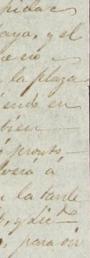 pidac
aya, y el
la plaza
iendo en
bien
pronto
verá á
la tarde
, y dic.
, para oir